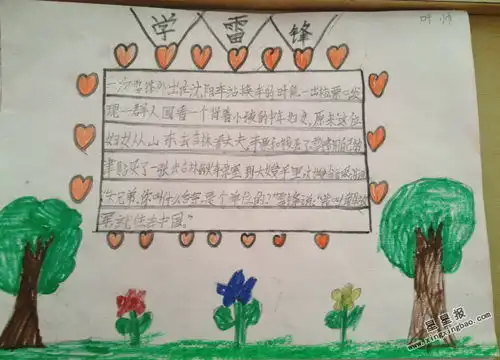 学雷锋
叶 帅
一次雷锋外出在沈阳车站换车的时候一出检票口发
现一群人围着一个背着小孩的中年妇女,原来这位
妇女从山东去吉林看丈夫,车票和钱丢了
买了一张去吉林的火车票塞到大嫂手里,大嫂
"大兄弟,你叫什么名字,是哪个单位的?"雷锋说"我叫解放
军就住在中国。"
星星报
www.xingxingbao.com